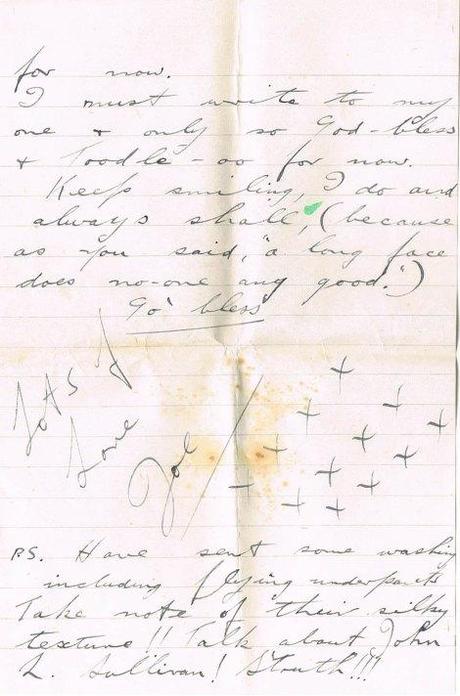 for now.
I must write to my
one + only so God-bless
+ Toodle-oo for now.
Keep smiling, I do and
always shall, (because
as you said, "a long face
does no-one any good.")
Go' bless
Lots of
Love
Joe
+ + + + + + + + + + + + +
P.S. Have sent some washing
including flying underpants
Take note of their silky
texture!! Talk about John
L. Sullivan! Struth!!!